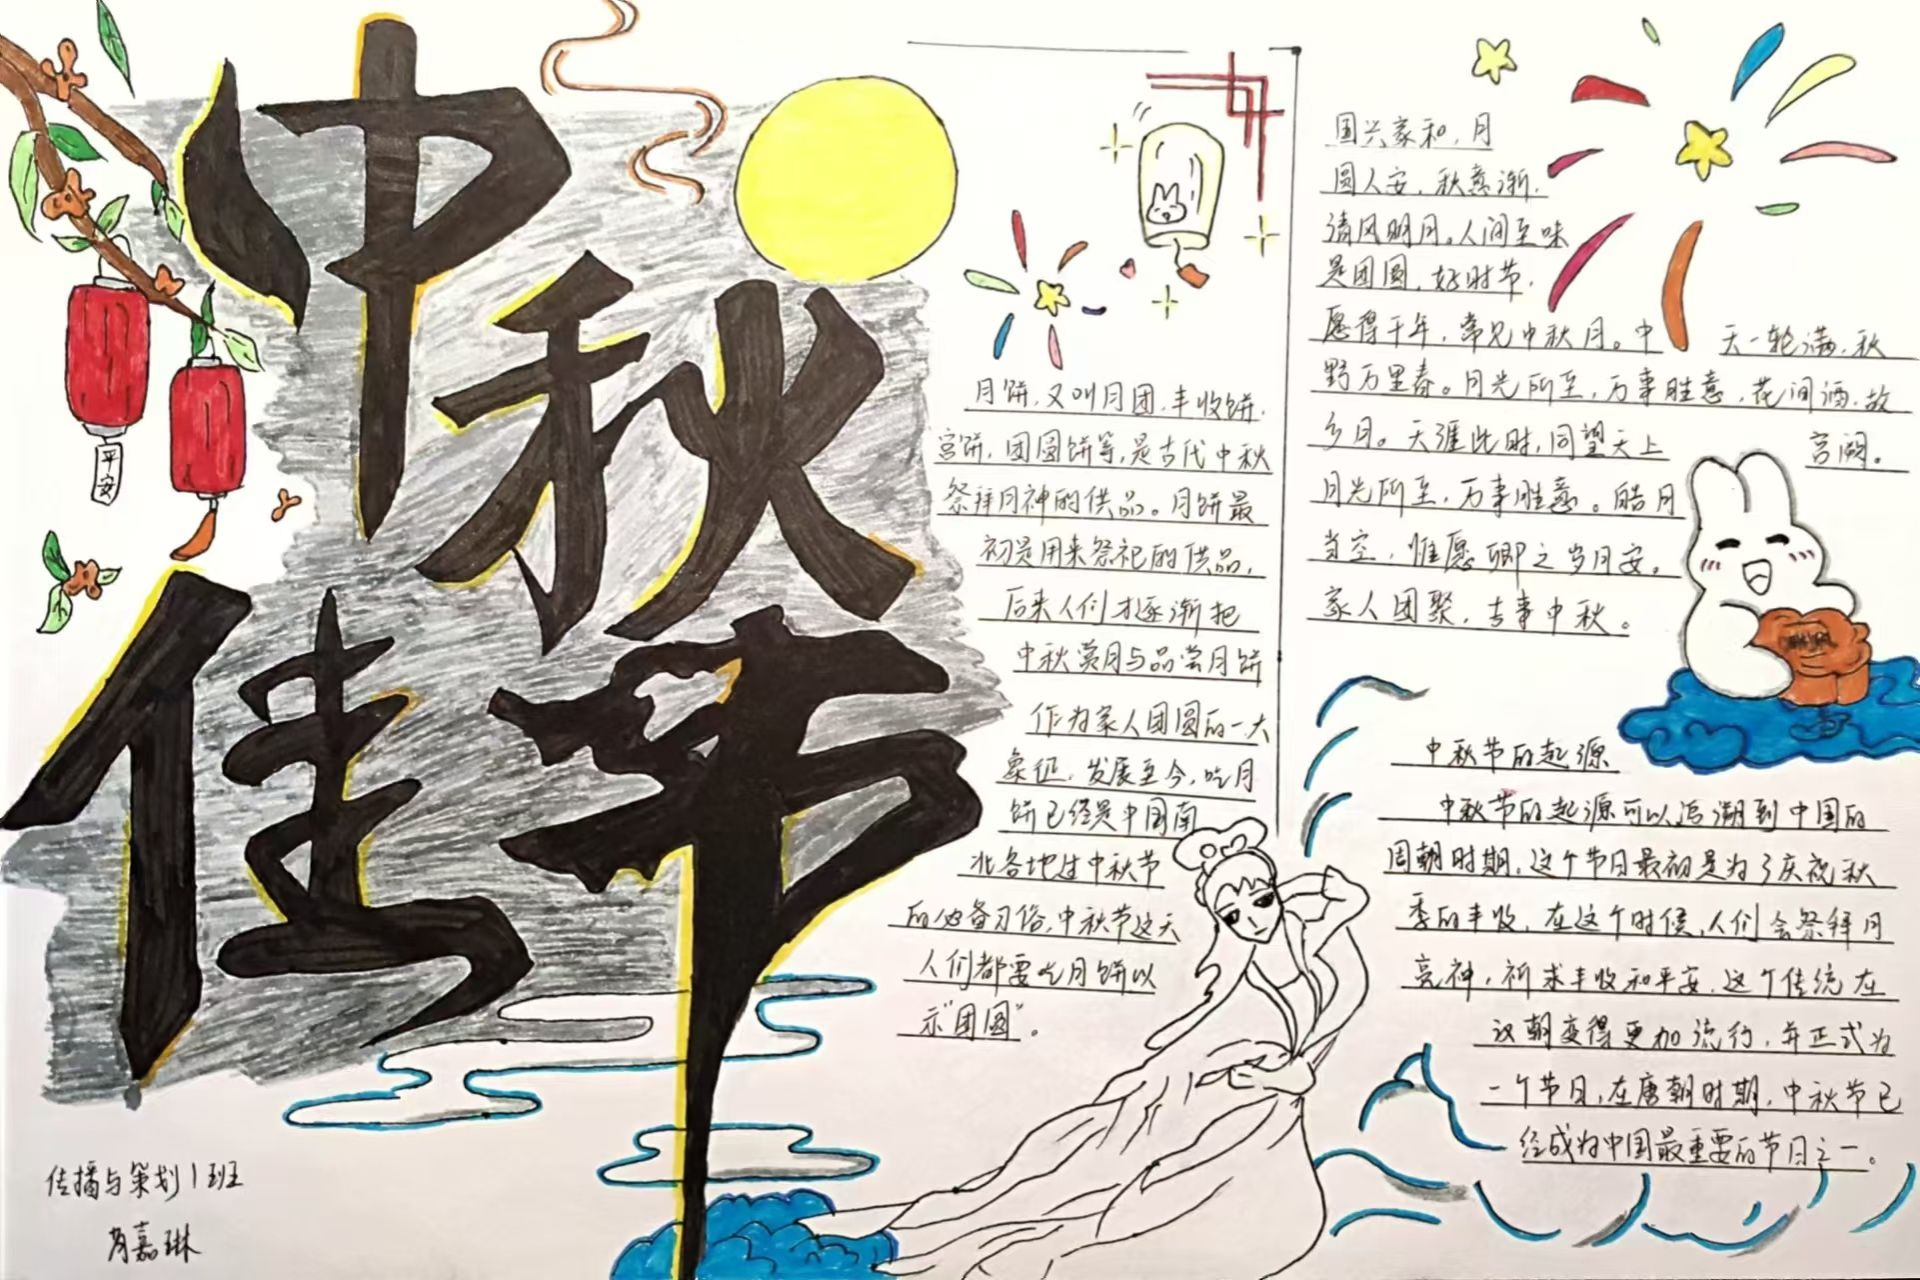 中秋
佳节
平安
月饼,又叫月团,丰收饼,
宫饼,团圆饼等,是古代中秋
祭拜月神的供品。月饼最
初是用来祭祀的供品,
后来人们才逐渐把
中秋赏月与品尝月饼
作为家人团圆的一大
象征,发展至今,吃月
饼已经是中国南
北各地过中秋节
的必备习俗,中秋节这天
人们都要吃月饼以
示“团圆”。
国兴家和,月
圆人安,秋意渐,
清风明月。人间至味
是团圆,好时节,
愿得千年,常见中秋月。中 天一轮满,秋
野万里春。月光所至,万事胜意,花间酒,故
乡月。天涯此时,同望天上 宫阙。
月光所至,万事胜意。皓月
当空,惟愿卿之岁月安。
家人团聚,古事中秋。
中秋节的起源
中秋节的起源可以追溯到中国的
周朝时期,这个节日最初是为了庆祝秋
季的丰收,在这个时候,人们会祭拜月
亮神,祈求丰收和平安,这个传统在
汉朝变得更加流行,并正式为
一个节日,在唐朝时期,中秋节已
经成为中国最重要的节日之一。
传播与策划1班
肖嘉琳